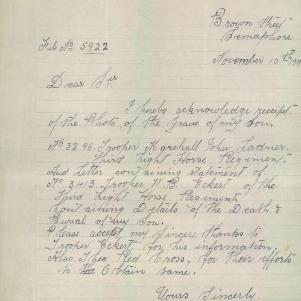 Brown Street
Semaphore
November 10th 19
File No 5922
Dear Sir
I hereby acknowledge receipt
of the Photo of the Grave of my Son
No 3296. Trooper Marshall John Ladner.
Third Light Horse Regiment.
And Letter containing statement of
No 3413. Trooper N. B. Eckert of the
Third Light Horse Regiment
containing Details of the Death &
Burial of my Son.
Please accept my Sincere thanks to
Trooper Eckert for his information,
Also The Red Cross, for their efforts
to obtain same.
Yours Sincerely